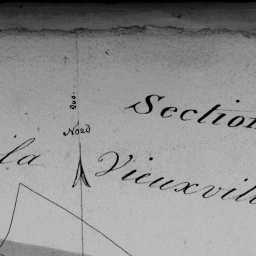 Section
Nord
la Vieuxvill